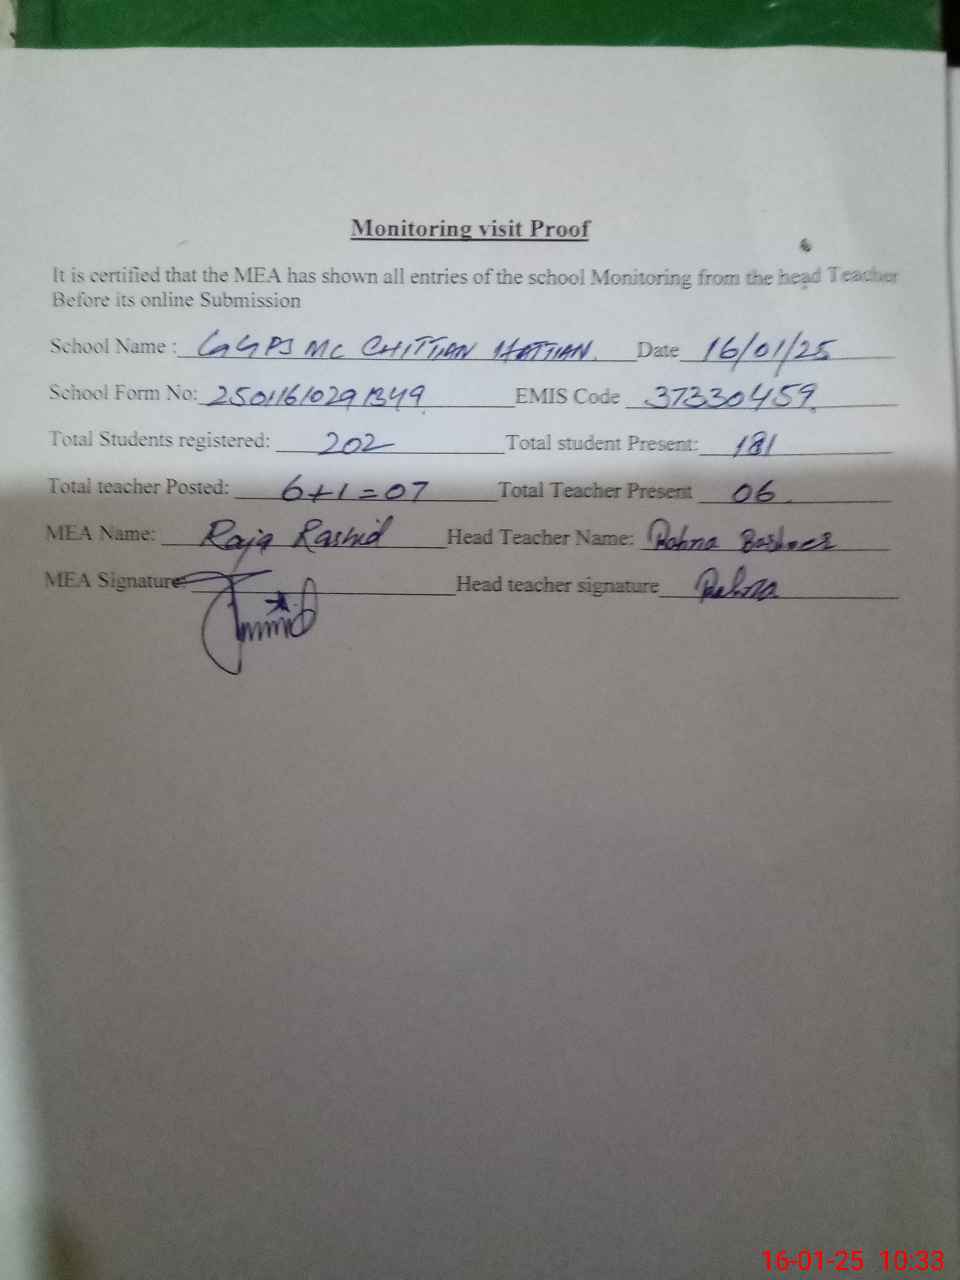 Monitoring visit Proof
It is certified that the MEA has shown all entries of the school Monitoring from the head Teacher
Before its online Submission
School Name : GGPS MC CHITTIAN HATTIAN. Date 16/01/25
School Form No: 25011610291349 EMIS Code 37330459
Total Students registered: 202 Total student Present: 181
Total teacher Posted: 6+1=07 Total Teacher Present 06
MEA Name: Raja Rashid Head Teacher Name:
MEA Signature: Head teacher signature
16-01-25 10:33